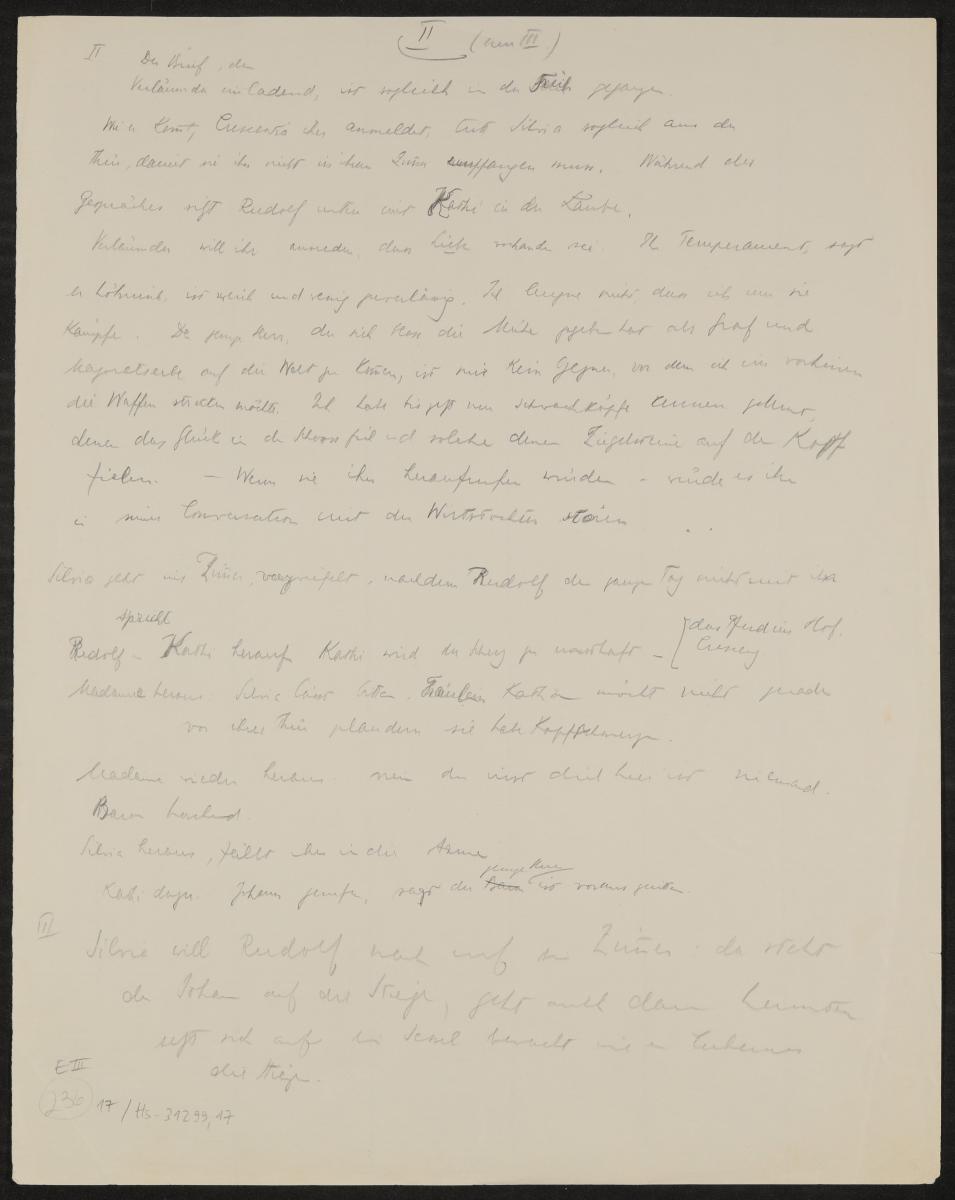 II (neu III.)
II Der Brief, den
Verläumder einladend, ist sogleich in der Früh gegangen.
Wie er komt, Crescentia ihn anmeldet, tritt Silvia sogleich aus der
Thür, damit sie ihn nicht in ihrem Zimer empfangen muss. Während des
Gespräches sitzt Rudolf unten mit Kathi in der Laube.
Verläumder will ihr ausreden, dass Liebe vorhanden sei. Ihr Temperament, sagt
er höhnisch, ist weich und wenig zuverlässig. Ich leugne nicht, dass ich um sie
kämpfe. Der junge Herr, der sich bloss die Mühe gegeben hat als Graf und
Magnatserbe auf die Welt zu komen, ist mir kein Gegner, vor dem ich im vorhinein
die Waffen strecken möchte. Ich habe bis jetzt nur Schwachköpfe kennen gelernt,
denen das Glück in den Schooss fiel und solche denen Ziegelsteine auf den Kopf
fielen. – Wenn sie ihn heraufrufen würden – würde es ihn
in seiner Conversation mit der Wirtstochter stören . .
Silvia geht ins Zimer, verzweifelt, nachdem Rudolf den ganzen Tag nicht mit ihr
spricht
Rudolf – Kathi herauf Kathi wird der Scherz zu – [das Pferd im Hof.
Crescenz
Madame heraus: Silvia lässt bitten. Fräulein Kathi möcht nicht gerade
vor ihrer Thür plaudern sie habe Kopfschmerzen.
Madame wieder heraus: nein du irrst dich hier ist niemand.
Baron
Silvia heraus, fällt ihm in die Arme
junge Herr
Kathi dazu. Johann gerufen, sagt der Baron ist voraus geritten.
III
Silvia will Rudolf nach auf sein Zimer: da steht
der Johann auf der Stiege, geht auch dann herunter
setzt sich auf ein Sessel bewacht wie ein Cerberus
die Stiege.
E III
236 17 / Hs-31299,17